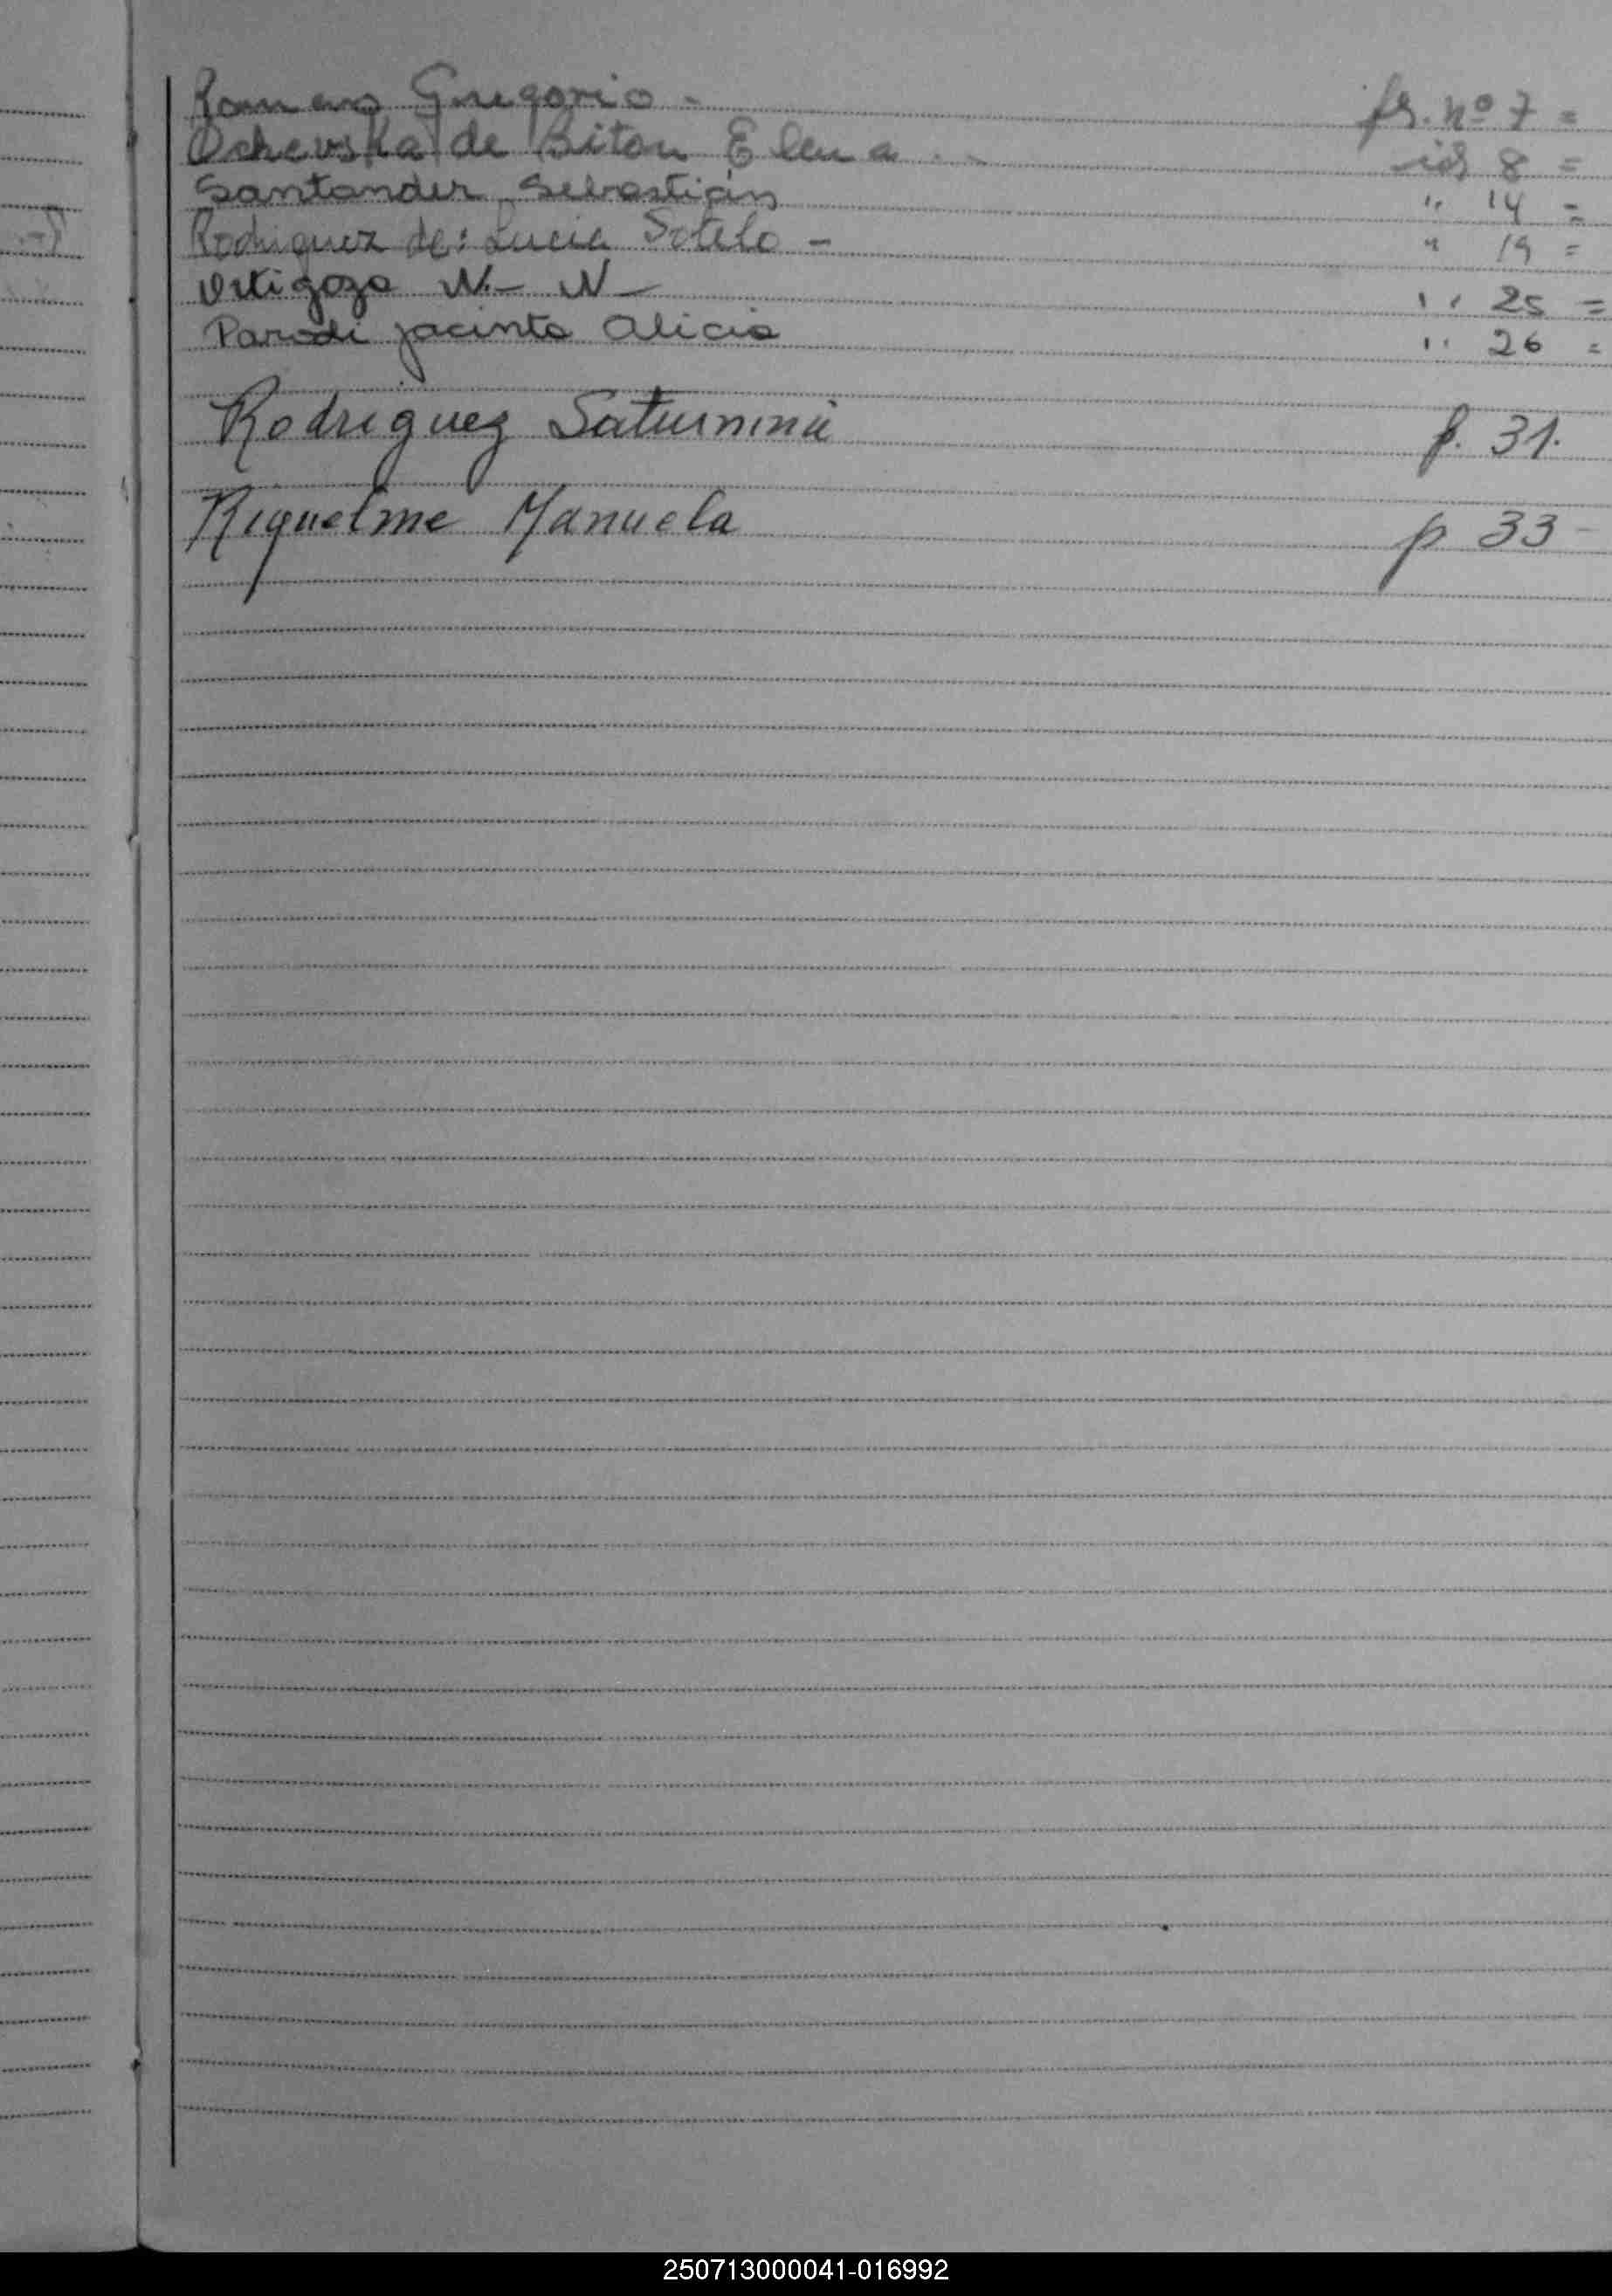 Romero Gregorio - fs. nº 7 =
Ochevska de Biton Elena . - id 8 =
Santander Sebastián " 14 =
Rodriguez de: Lucia Sotelo - " 19 =
Ortigoza N.- N- " 25 =
Parodi jacinto Alicia " 26 =
Rodriguez Saturnina f. 31.
Riquelme Manuela p 33 -
250713000041-016992